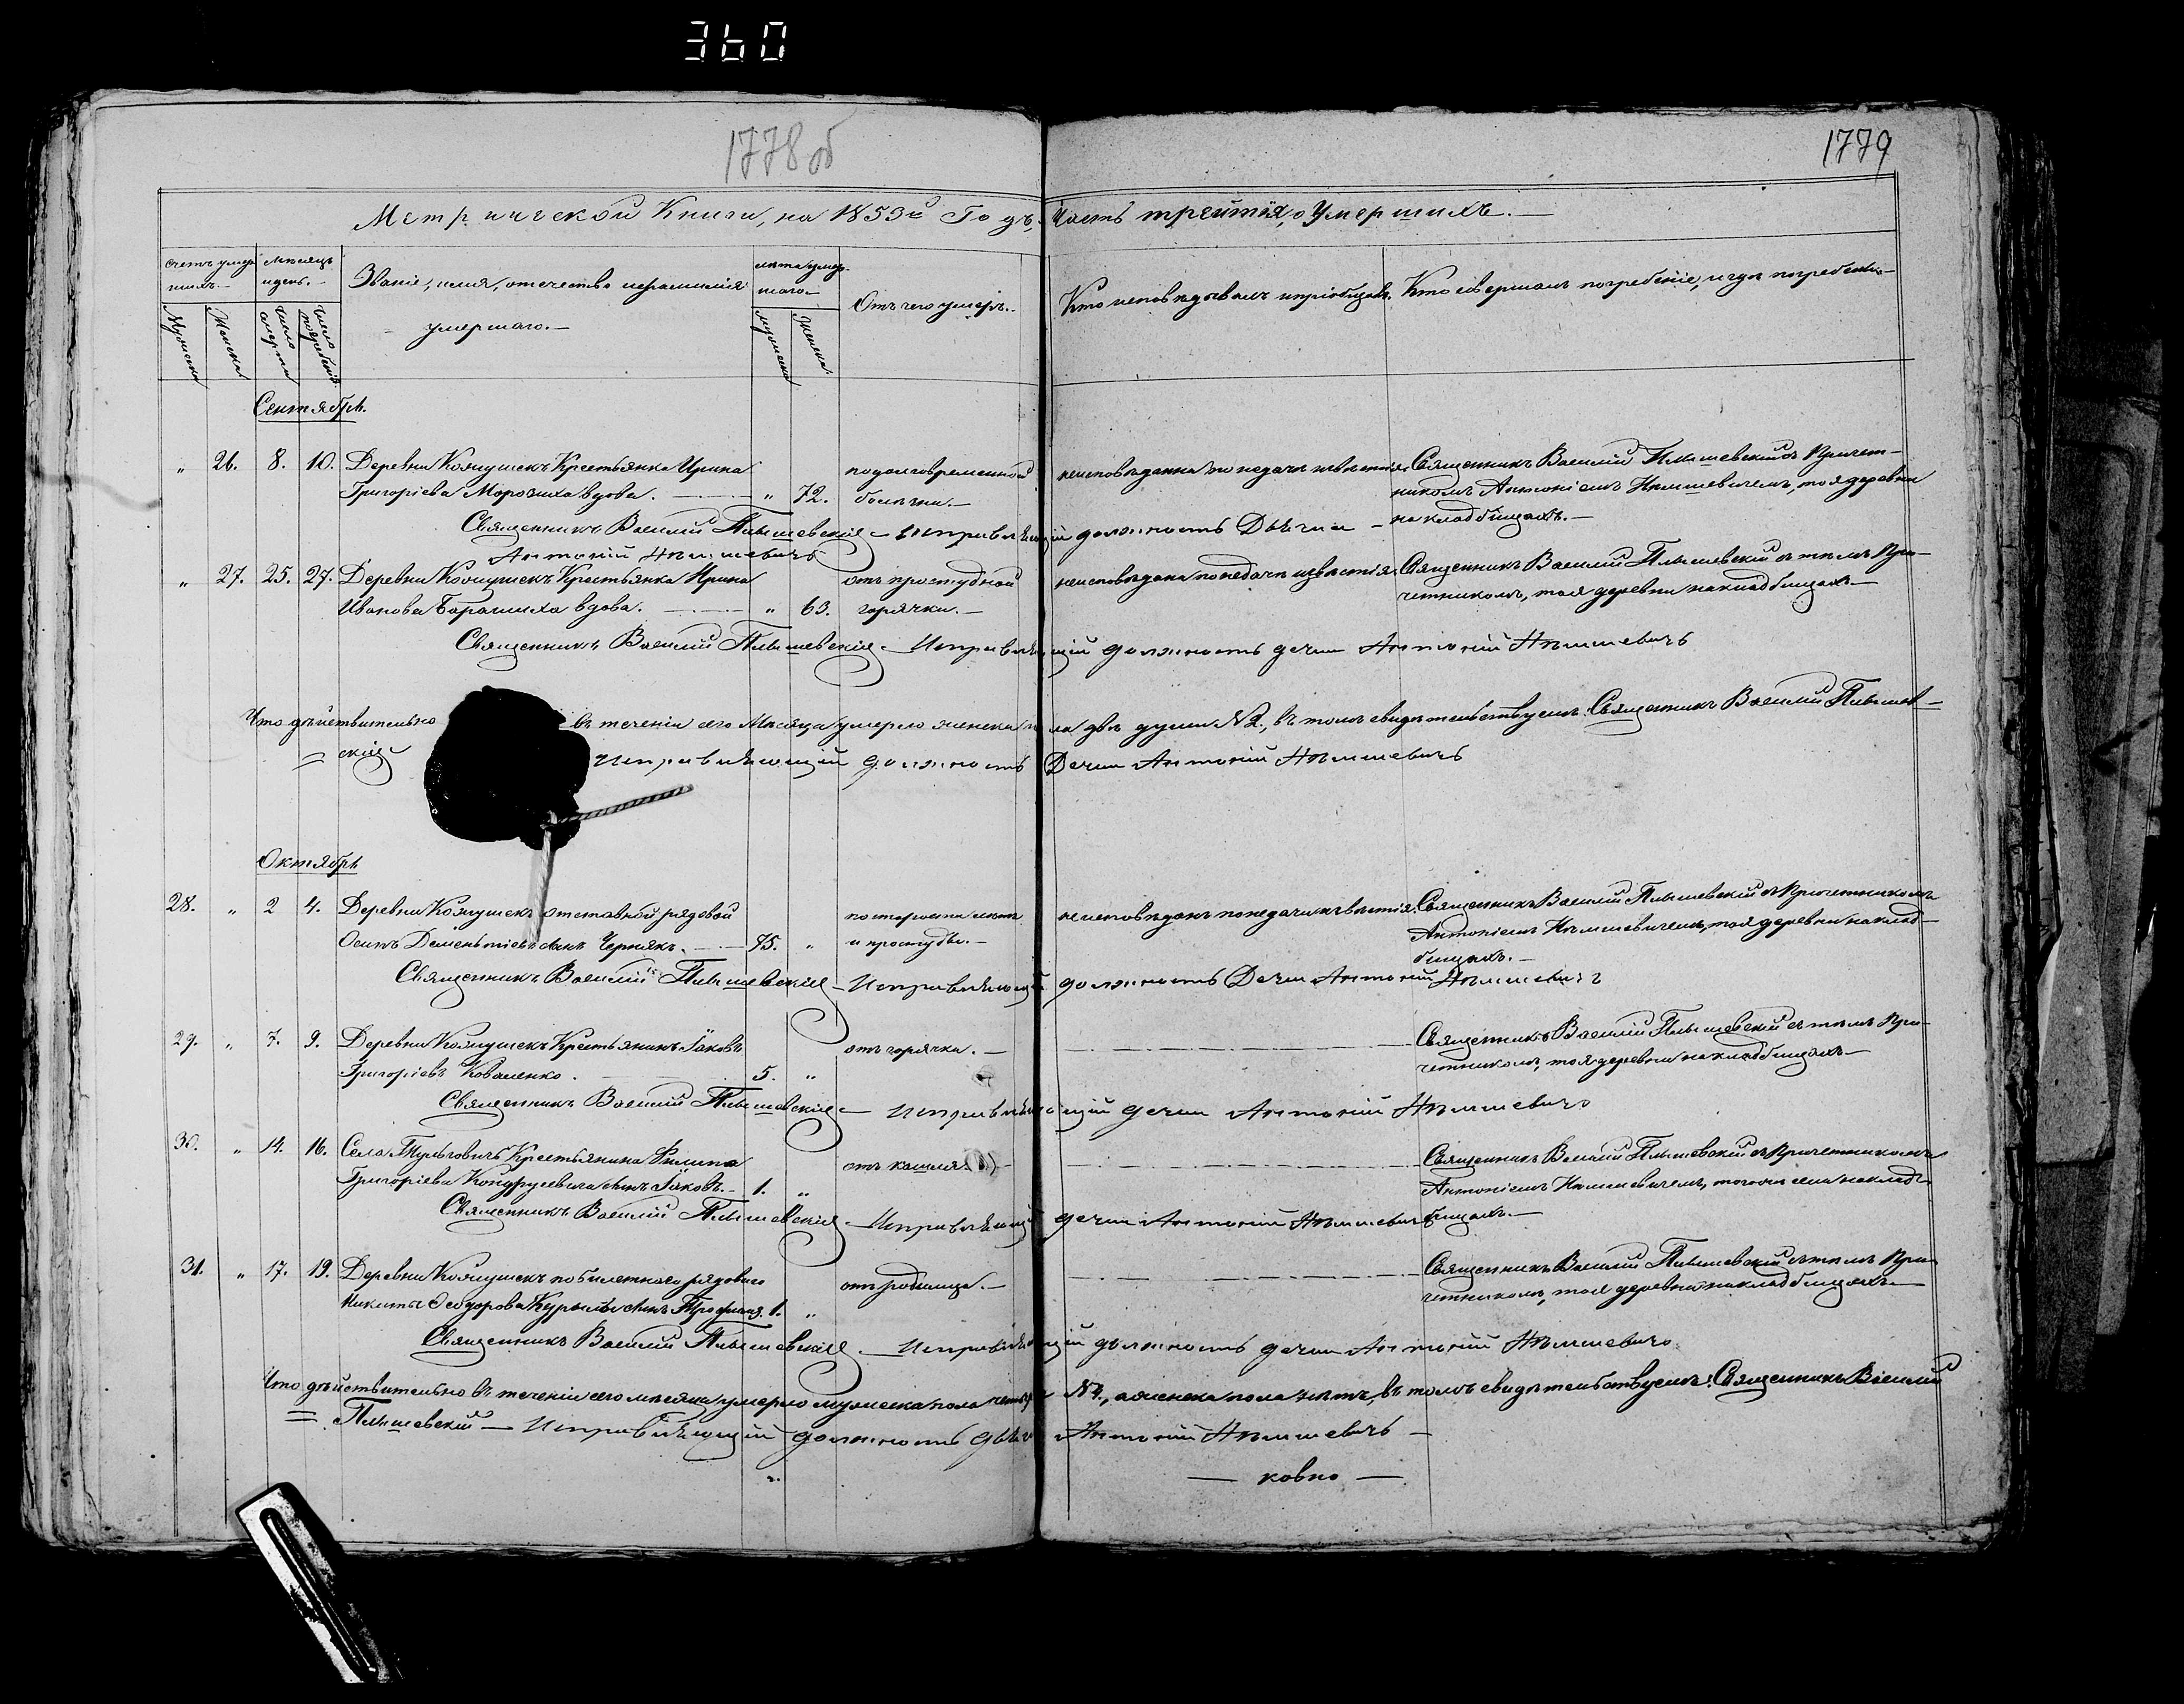 360
1778 об
1779
Метрической Книги, на 1853й Годъ, Часть третія, о Умершихъ.
Счетъ умер-
шихъ.
Мѣсяцъ
и день.
Званіе, имя, отечество и фамилія
умершаго.
лѣта умер-
шаго.
Отъ чего умеръ.
Кто исповѣдывалъ и пріобщалъ.
Кто совершалъ погребеніе, и гдѣ погребены
Мужеска
Женска
число смерти
число погребенія
мужеска
женска
Сентябрь.
" 26. 8. 10. Деревни Кожушекъ Крестьянка Ирина
Григоріева Морозиха вдова. " 72.
по долговременной
болѣзни.
неисповѣданна по недачи извѣстія.
Священникъ Василій Плышевскій съ Причет-
никомъ Антоніемъ Нѣмшевичемъ, тоя деревни
на кладбищахъ.
Священникъ Василій Плышевскій Исправляющій должность Дьячка
Антоній Нѣмшевичъ
" 27. 25. 27. Деревни Кожушекъ Крестьянка Ирина
Иванова Барашиха вдова. " 63.
отъ простудной
горячки.
неисповѣдана по недачи извѣстія.
Священникъ Василій Плышевскій съ тѣмъ При-
четникомъ, тоя деревни на кладбищахъ
Священникъ Василій Плышевскій Исправляющій должность дячка Антоній Нѣмшевичъ
Что дѣйствительно въ теченіи сего Мѣсяца умерло женска пола двѣ души №2, въ томъ свидѣтельствуемъ: Священникъ Василій Плышев-
скій Исправляющій должность Дячка Антоній Нѣмшевичъ
Октябрь
28. " 2 4. Деревни Кожушекъ отставной рядовой
Осипъ Дементіевъ сынъ Чернякъ. 75. "
по старости лѣтъ
и простуды.
неисповѣданъ по недачи извѣстія.
Священникъ Василій Плышевскій съ Причетникомъ
Антоніемъ Нѣмшевичемъ, тоя деревни на клад-
бищахъ.
Священникъ Василій Плышевскій Исправляющій должность Дячка Антоній Нѣмшевичъ
29. " 7. 9. Деревни Кожушекъ Крестьянинъ Іаковъ
Григоріевъ Коваленко. 5. "
отъ горячки.
Священникъ Василій Плышевскій съ тѣмъ При-
четникомъ, тоя деревни на кладбищахъ
Священникъ Василій Плышевскій Исправляющій дячка Антоній Нѣмшевичъ
30. " 14. 16. Села Тульговичъ Крестьянина Филипа
Григоріева Кондрусевича сынъ Іаковъ. 1. "
отъ кашля.
Священникъ Василій Плышевскій съ Причетникомъ
Антоніемъ Нѣмшевичемъ, тогожъ села на клад-
бищахъ.
Священникъ Василій Плышевскій Исправляющій дячка Антоній Нѣмшевичъ
31. " 17. 19. Деревни Кожушекъ побилетнаго рядоваго
Никиты Ѳеодорова сынъ Трофимъ. 1. "
отъ родимца.
Священникъ Василій Плышевскій съ тѣмъ При-
четникомъ, тоя деревни на кладбищахъ
Священникъ Василій Плышевскій Исправляющій должность дячка Антоній Нѣмшевичъ
Что дѣйствительно въ теченіи сего мѣсяца умерло мужеска пола четыре №4, а женска пола нѣтъ, въ томъ свидѣтельствуемъ: Священникъ Василій
Плышевскій Исправляющій должность дьячка Антоній Нѣмшевичъ
ковно